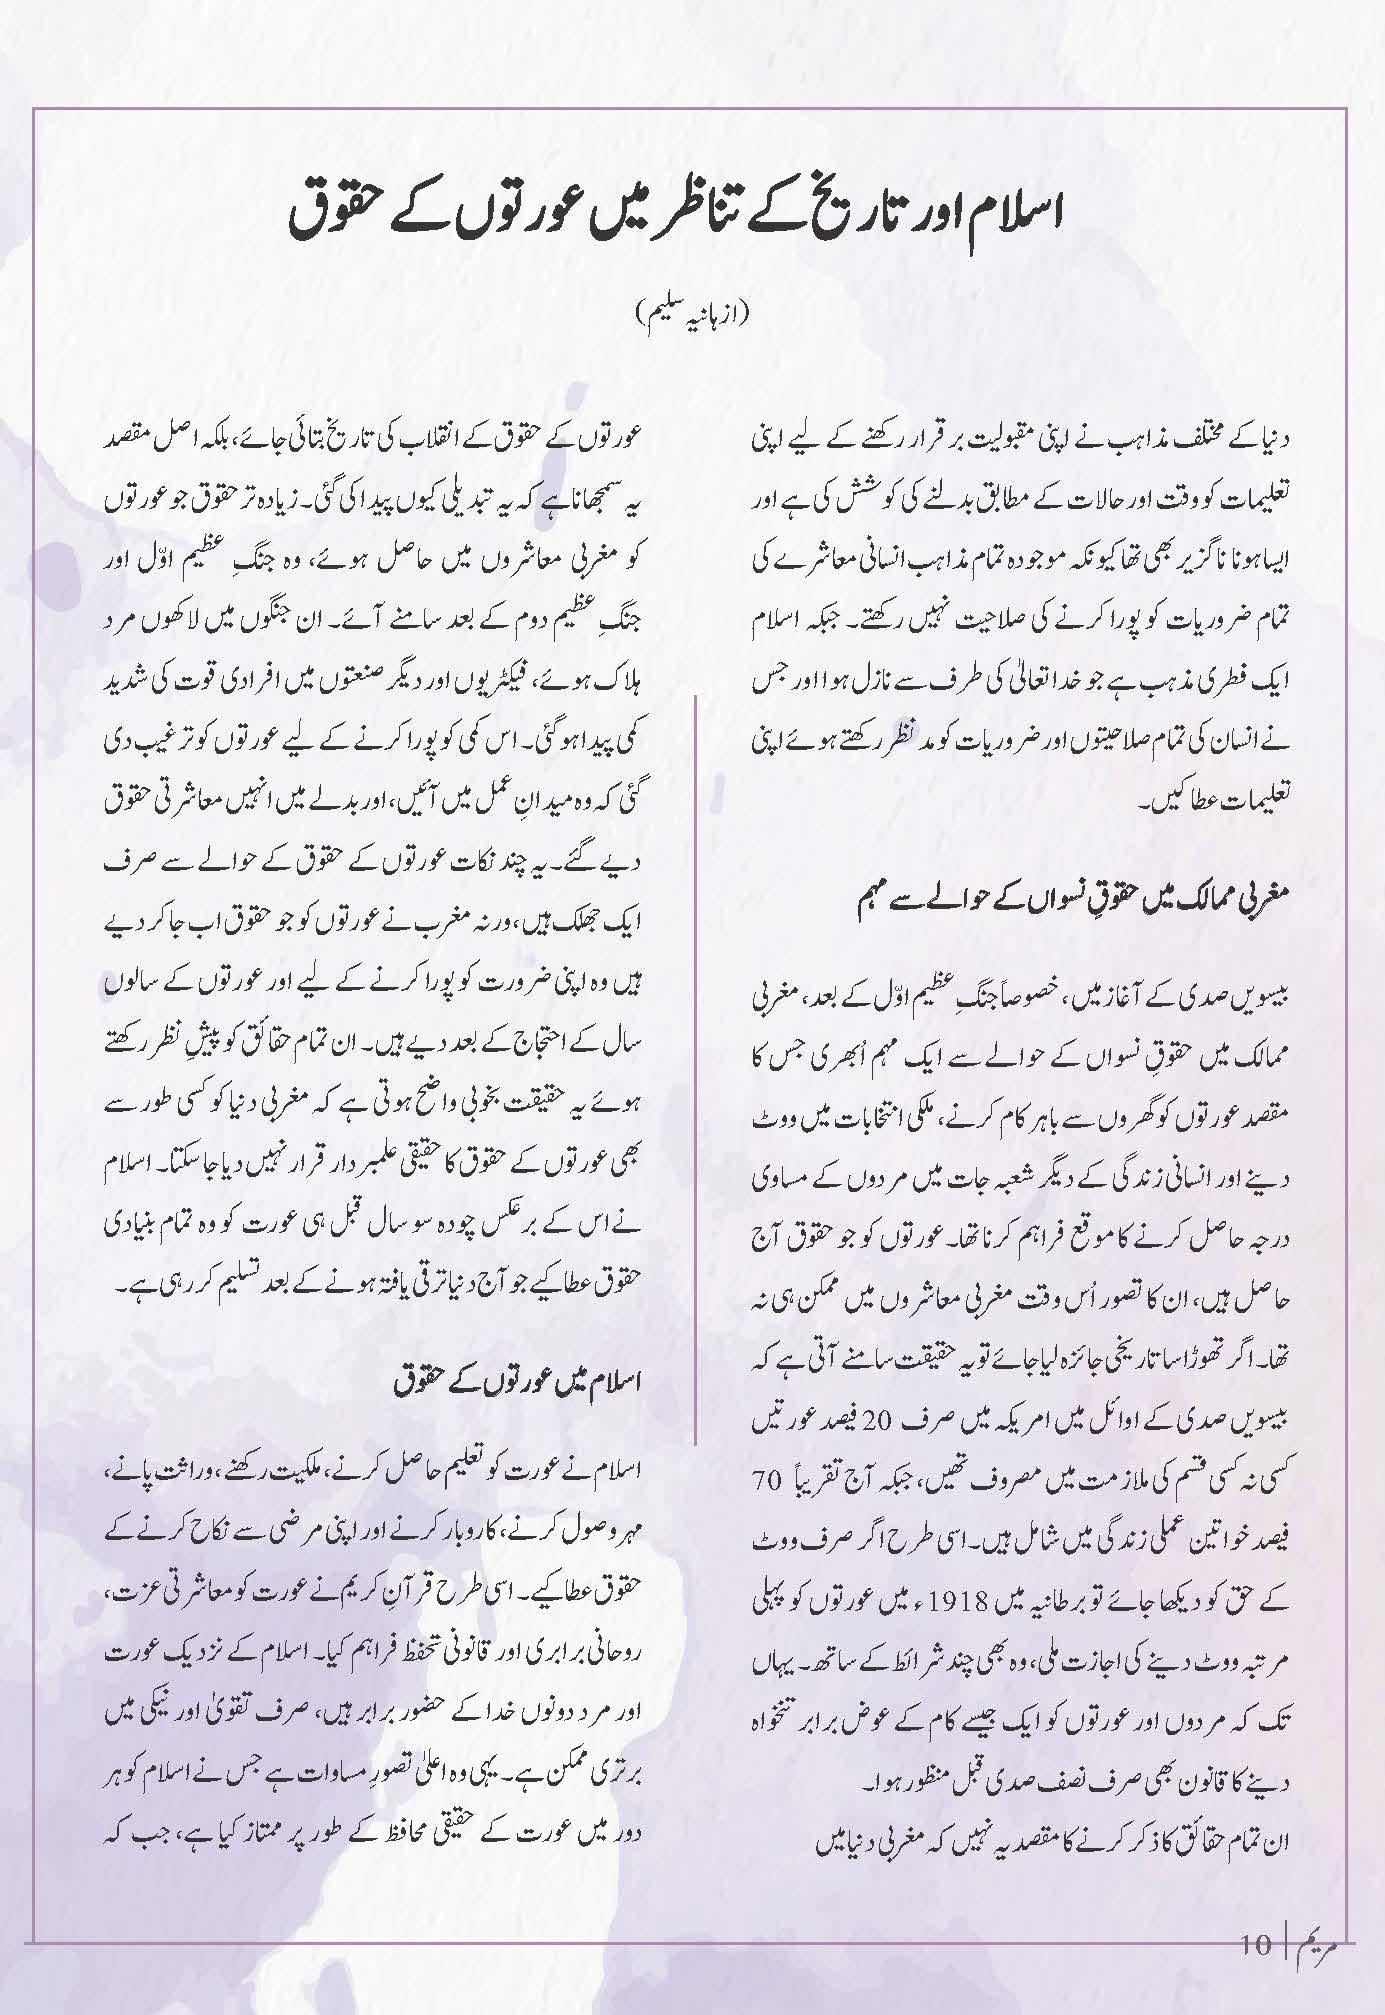 اسلام اور تاریخ کے تناظر میں عورتوں کے حقوق
(از ہانیہ سلیم)
دنیا کے مختلف مذاہب نے اپنی مقبولیت برقرار رکھنے کے لیے اپنی
تعلیمات کو وقت اور حالات کے مطابق بدلنے کی کوشش کی ہے اور
ایسا ہونا ناگزیر بھی تھا کیونکہ موجودہ تمام مذاہب انسانی معاشرے کی
تمام ضروریات کو پورا کرنے کی صلاحیت نہیں رکھتے۔ جبکہ اسلام
ایک فطری مذہب ہے جو خدا تعالیٰ کی طرف سے نازل ہوا اور جس
نے انسان کی تمام صلاحیتوں اور ضروریات کو مد نظر رکھتے ہوئے اپنی
تعلیمات عطا کیں۔
مغربی ممالک میں حقوقِ نسواں کے حوالے سے مہم
بیسویں صدی کے آغاز میں، خصوصاً جنگِ عظیم اوّل کے بعد، مغربی
ممالک میں حقوقِ نسواں کے حوالے سے ایک مہم اُبھری جس کا
مقصد عورتوں کو گھروں سے باہر کام کرنے، ملکی انتخابات میں ووٹ
دینے اور انسانی زندگی کے دیگر شعبہ جات میں مردوں کے مساوی
درجہ حاصل کرنے کا موقع فراہم کرنا تھا۔ عورتوں کو جو حقوق آج
حاصل ہیں، ان کا تصور اُس وقت مغربی معاشروں میں ممکن ہی نہ
تھا۔ اگر تھوڑا سا تاریخی جائزہ لیا جائے تو یہ حقیقت سامنے آتی ہے کہ
بیسویں صدی کے اوائل میں امریکہ میں صرف 20 فیصد عورتیں
کسی نہ کسی قسم کی ملازمت میں مصروف تھیں، جبکہ آج تقریباً 70
فیصد خواتین عملی زندگی میں شامل ہیں۔ اسی طرح اگر صرف ووٹ
کے حق کو دیکھا جائے تو برطانیہ میں 1918ء میں عورتوں کو پہلی
مرتبہ ووٹ دینے کی اجازت ملی، وہ بھی چند شرائط کے ساتھ۔ یہاں
تک کہ مردوں اور عورتوں کو ایک جیسے کام کے عوض برابر تنخواہ
دینے کا قانون بھی صرف نصف صدی قبل منظور ہوا۔
ان تمام حقائق کا ذکر کرنے کا مقصد یہ نہیں کہ مغربی دنیا میں
عورتوں کے حقوق کے انقلاب کی تاریخ بتائی جائے، بلکہ اصل مقصد
یہ سمجھانا ہے کہ یہ تبدیلی کیوں پیدا کی گئی۔ زیادہ تر حقوق جو عورتوں
کو مغربی معاشروں میں حاصل ہوئے، وہ جنگِ عظیم اوّل اور
جنگِ عظیم دوم کے بعد سامنے آئے۔ ان جنگوں میں لاکھوں مرد
ہلاک ہوئے، فیکٹریوں اور دیگر صنعتوں میں افرادی قوت کی شدید
کمی پیدا ہو گئی۔ اس کمی کو پورا کرنے کے لیے عورتوں کو ترغیب دی
گئی کہ وہ میدانِ عمل میں آئیں، اور بدلے میں انہیں معاشرتی حقوق
دیے گئے۔ یہ چند نکات عورتوں کے حقوق کے حوالے سے صرف
ایک جھلک ہیں، ورنہ مغرب نے عورتوں کو جو حقوق اب جا کر دیے
ہیں وہ اپنی ضرورت کو پورا کرنے کے لیے اور عورتوں کے سالوں
سال کے احتجاج کے بعد دیے ہیں۔ ان تمام حقائق کو پیشِ نظر رکھتے
ہوئے یہ حقیقت بخوبی واضح ہوتی ہے کہ مغربی دنیا کو کسی طور سے
بھی عورتوں کے حقوق کا حقیقی علمبردار قرار نہیں دیا جا سکتا۔ اسلام
نے اس کے برعکس چودہ سو سال قبل ہی عورت کو وہ تمام بنیادی
حقوق عطا کیے جو آج دنیا ترقی یافتہ ہونے کے بعد تسلیم کر رہی ہے۔
اسلام میں عورتوں کے حقوق
اسلام نے عورت کو تعلیم حاصل کرنے، ملکیت رکھنے، وراثت پانے،
مہر وصول کرنے، کاروبار کرنے اور اپنی مرضی سے نکاح کرنے کے
حقوق عطا کیے۔ اسی طرح قرآنِ کریم نے عورت کو معاشرتی عزت،
روحانی برابری اور قانونی تحفظ فراہم کیا۔ اسلام کے نزدیک عورت
اور مرد دونوں خدا کے حضور برابر ہیں، صرف تقویٰ اور نیکی میں
برتری ممکن ہے۔ یہی وہ اعلیٰ تصورِ مساوات ہے جس نے اسلام کو ہر
دور میں عورت کے حقیقی محافظ کے طور پر ممتاز کیا ہے، جب کہ
مریم | 10